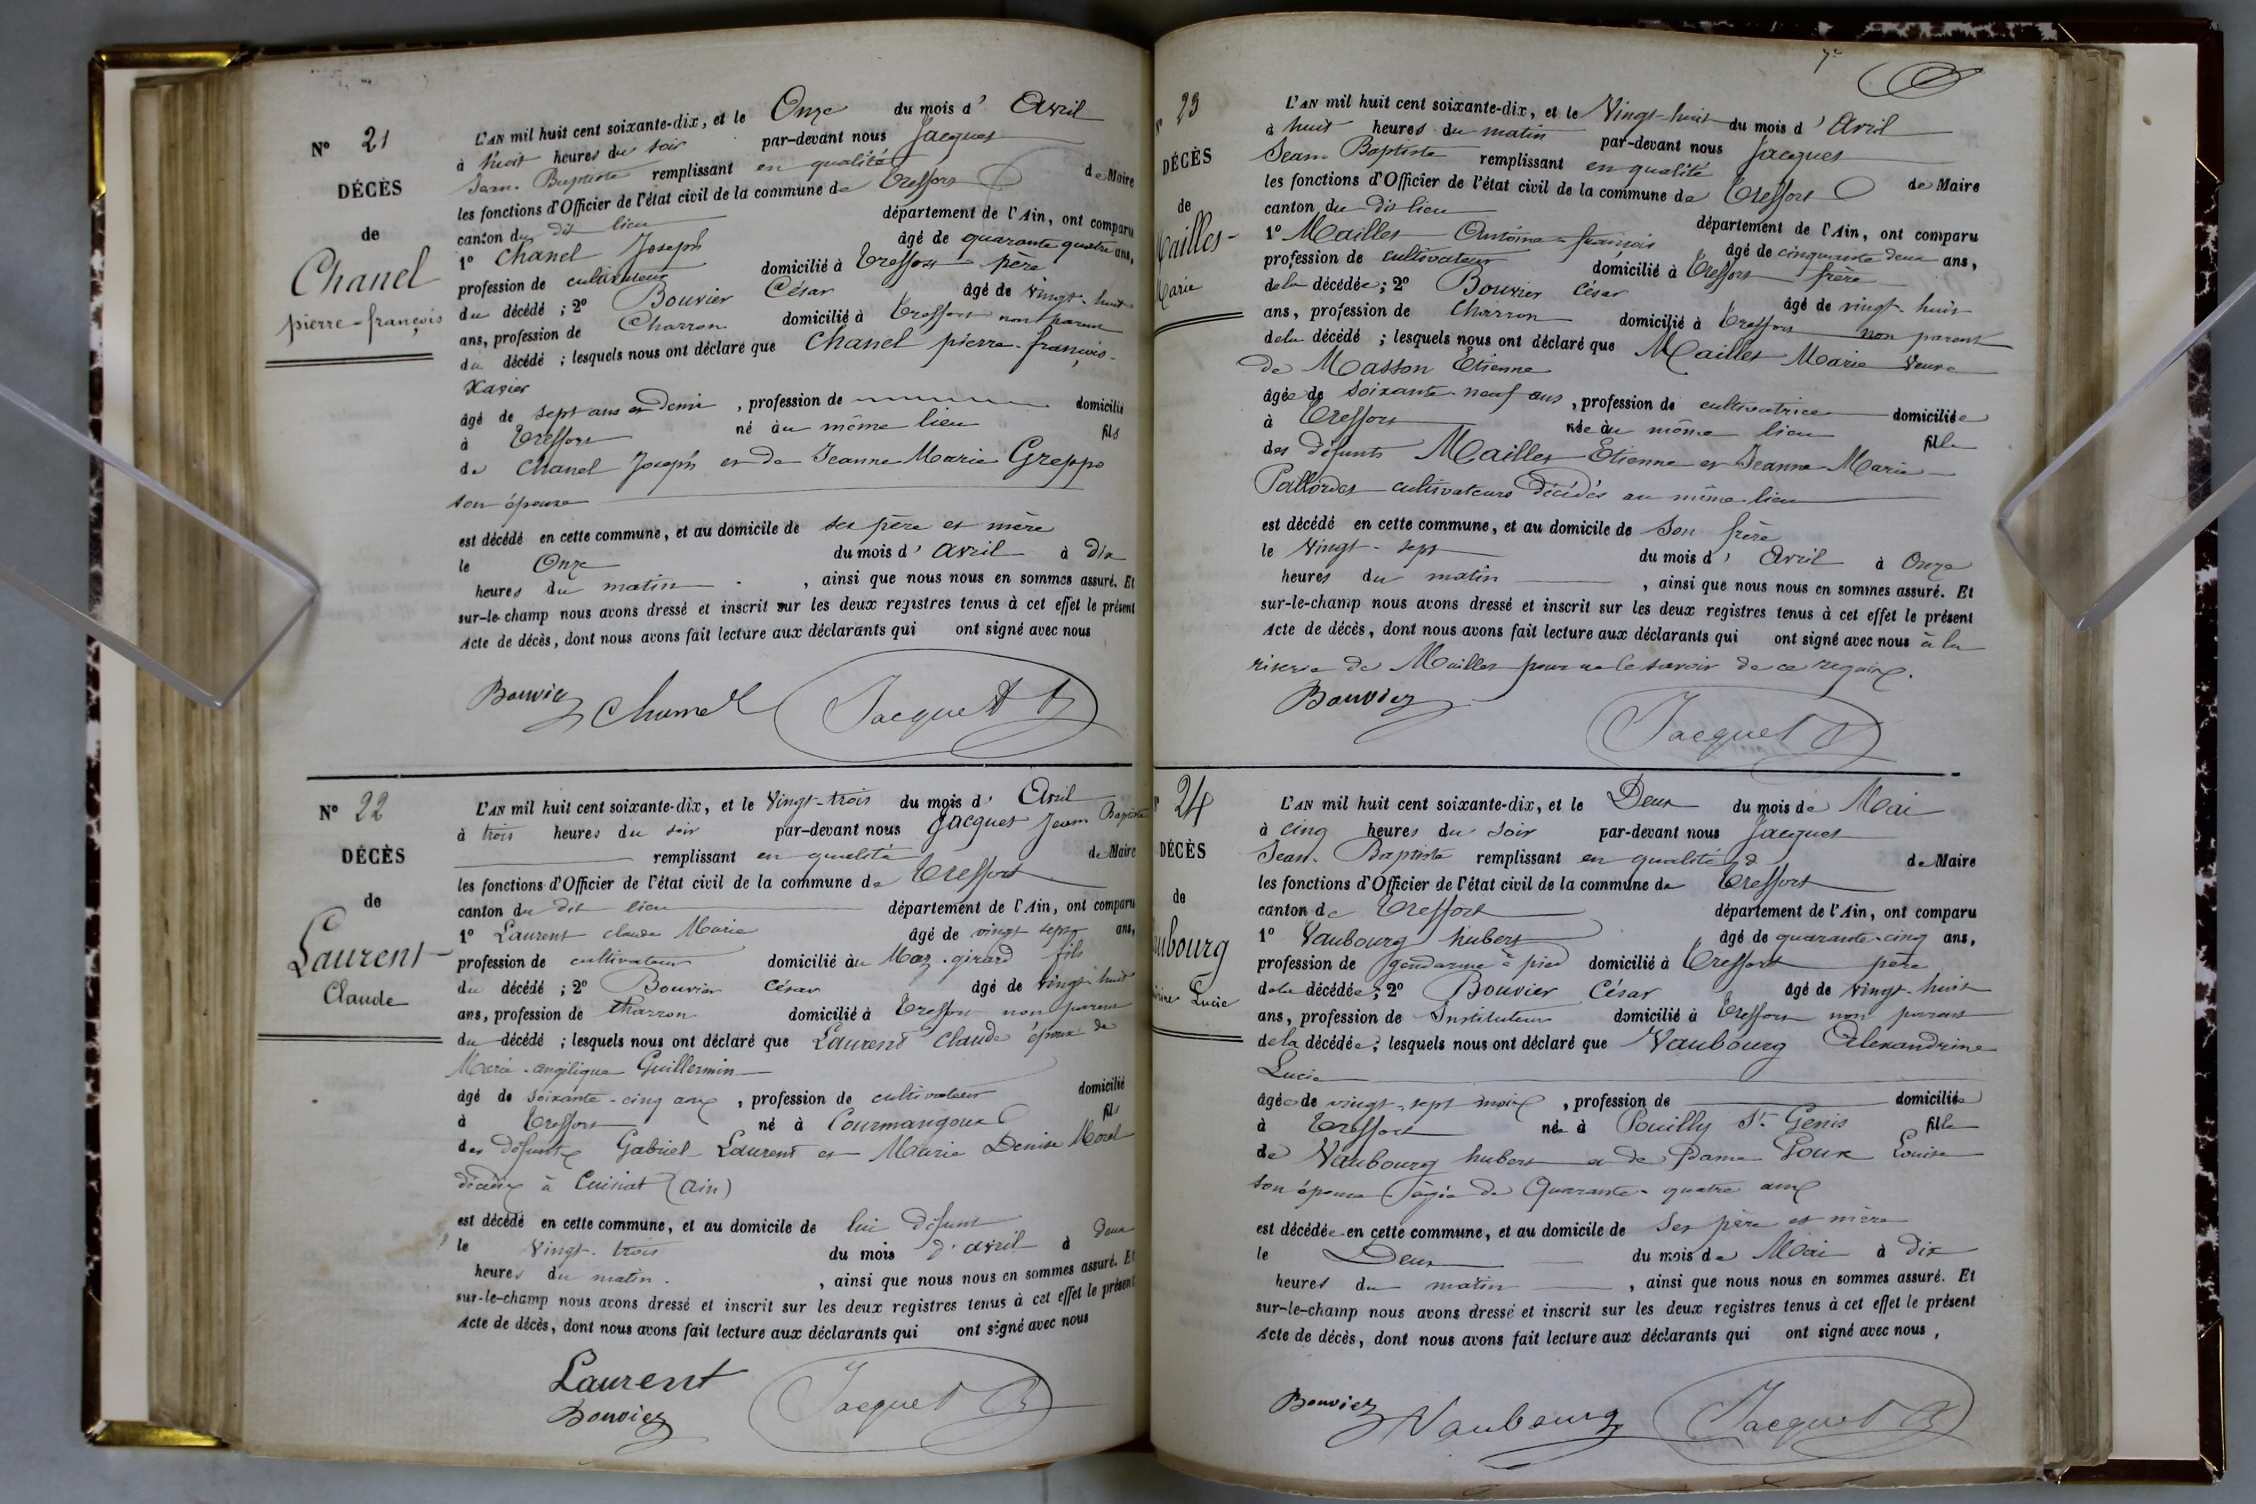 N° 21
DÉCÈS
de
Chanel
pierre-françois
L'AN mil huit cent soixante-dix, et le Onze du mois d' Avril
à huit heures du soir par-devant nous Jacquet
Jean-Baptiste remplissant en qualité de Maire
les fonctions d'Officier de l'état civil de la commune de Treffort
canton du dit lieu département de l'Ain, ont comparu
1° Chanel Joseph âgé de quarante quatre ans,
profession de cultivateur domicilié à Treffort père
du décédé ; 2° Bouvier César âgé de vingt-huit
ans, profession de Charron domicilié à Treffort non parent
du décédé ; lesquels nous ont déclaré que Chanel pierre-françois-
Xavier
âgé de sept ans et demi , profession de domicilié
à Treffort né au même lieu fils
de Chanel Joseph et de Jeanne Marie Greppo
son épouse
est décédé en cette commune, et au domicile de ses père et mère
le Onze du mois d' avril à dix
heures du matin , ainsi que nous nous en sommes assuré. Et
sur-le-champ nous avons dressé et inscrit sur les deux registres tenus à cet effet le présent
Acte de décès, dont nous avons fait lecture aux déclarants qui ont signé avec nous
Bouvier Chanel Jacquet
N° 22
DÉCÈS
de
Laurent
Claude
L'AN mil huit cent soixante-dix, et le Vingt-trois du mois d' Avril
à trois heures du soir par-devant nous Jacquet Jean Baptiste
remplissant en qualité de Maire
les fonctions d'Officier de l'état civil de la commune de Treffort
canton du dit lieu département de l'Ain, ont comparu
1° Laurent claude Marie âgé de vingt sept ans,
profession de cultivateur domicilié au Maz-girard fils
du décédé ; 2° Bouvier César âgé de vingt-huit
ans, profession de Charron domicilié à Treffort non parent
du décédé ; lesquels nous ont déclaré que Laurent Claude époux de
Marie-angélique Guillermin
âgé de soixante-cinq ans , profession de cultivateur domicilié
à Treffort né à Courmangoux fils
des défunts Gabriel Laurent et Marie Denise Morel
décédés à Cuisiat (Ain)
est décédé en cette commune, et au domicile de lui défunt
le Vingt-trois du mois d'avril à deux
heures du matin. , ainsi que nous nous en sommes assuré. Et
sur-le-champ nous avons dressé et inscrit sur les deux registres tenus à cet effet le présent
Acte de décès, dont nous avons fait lecture aux déclarants qui ont signé avec nous
Laurent
Bouvier Jacquet
23
DÉCÈS
de
Mailles
Marie
L'AN mil huit cent soixante-dix, et le Vingt-huit du mois d' Avril
à huit heures du matin par-devant nous Jacquet
Jean Baptiste remplissant en qualité de Maire
les fonctions d'Officier de l'état civil de la commune de Treffort
canton du dit lieu département de l'Ain, ont comparu
1° Mailles Antoine-françois âgé de cinquante deux ans,
profession de cultivateur domicilié à Treffort frère
de la décédée ; 2° Bouvier César âgé de vingt-huit
ans, profession de Charron domicilié à Treffort non parent
de la décédé ; lesquels nous ont déclaré que Mailles Marie Veuve
de Masson Etienne
âgée de soixante-neuf ans , profession de cultivatrice domiciliée
à Treffort née au même lieu fille
des défunts Mailles Etienne et Jeanne-Marie
cultivateurs décédés au même lieu
est décédé en cette commune, et au domicile de Son frère
le Vingt-sept du mois d' Avril à Onze
heures du matin , ainsi que nous nous en sommes assuré. Et
sur-le-champ nous avons dressé et inscrit sur les deux registres tenus à cet effet le présent
Acte de décès, dont nous avons fait lecture aux déclarants qui ont signé avec nous à la
de Mailles pour ne le savoir de ce requis.
Bouvier Jacquet
24
DÉCÈS
de
ubourg
Lucie
L'AN mil huit cent soixante-dix, et le Deux du mois de Mai
à cinq heures du soir par-devant nous Jacquet
Jean-Baptiste remplissant en qualité de Maire
les fonctions d'Officier de l'état civil de la commune de Treffort
canton de Treffort département de l'Ain, ont comparu
1° Vaubourg hubert âgé de quarante-cinq ans,
profession de gendarme à pied domicilié à Treffort père
de la décédée ; 2° Bouvier César âgé de vingt-huit
ans, profession de Instituteur domicilié à Treffort non parent
de la décédée ; lesquels nous ont déclaré que Vaubourg Alexandrine
Lucie
âgée de vingt-sept mois , profession de domiciliée
à Treffort née à Pouilly St-Genis fille
de Vaubourg hubert et de Dame Loux Louise
son épouse âgée de Quarante-quatre ans
est décédée en cette commune, et au domicile de Ses père et mère
le Deux du mois de Mai à dix
heures du matin , ainsi que nous nous en sommes assuré. Et
sur-le-champ nous avons dressé et inscrit sur les deux registres tenus à cet effet le présent
Acte de décès, dont nous avons fait lecture aux déclarants qui ont signé avec nous,
Bouvier Vaubourg Jacquet